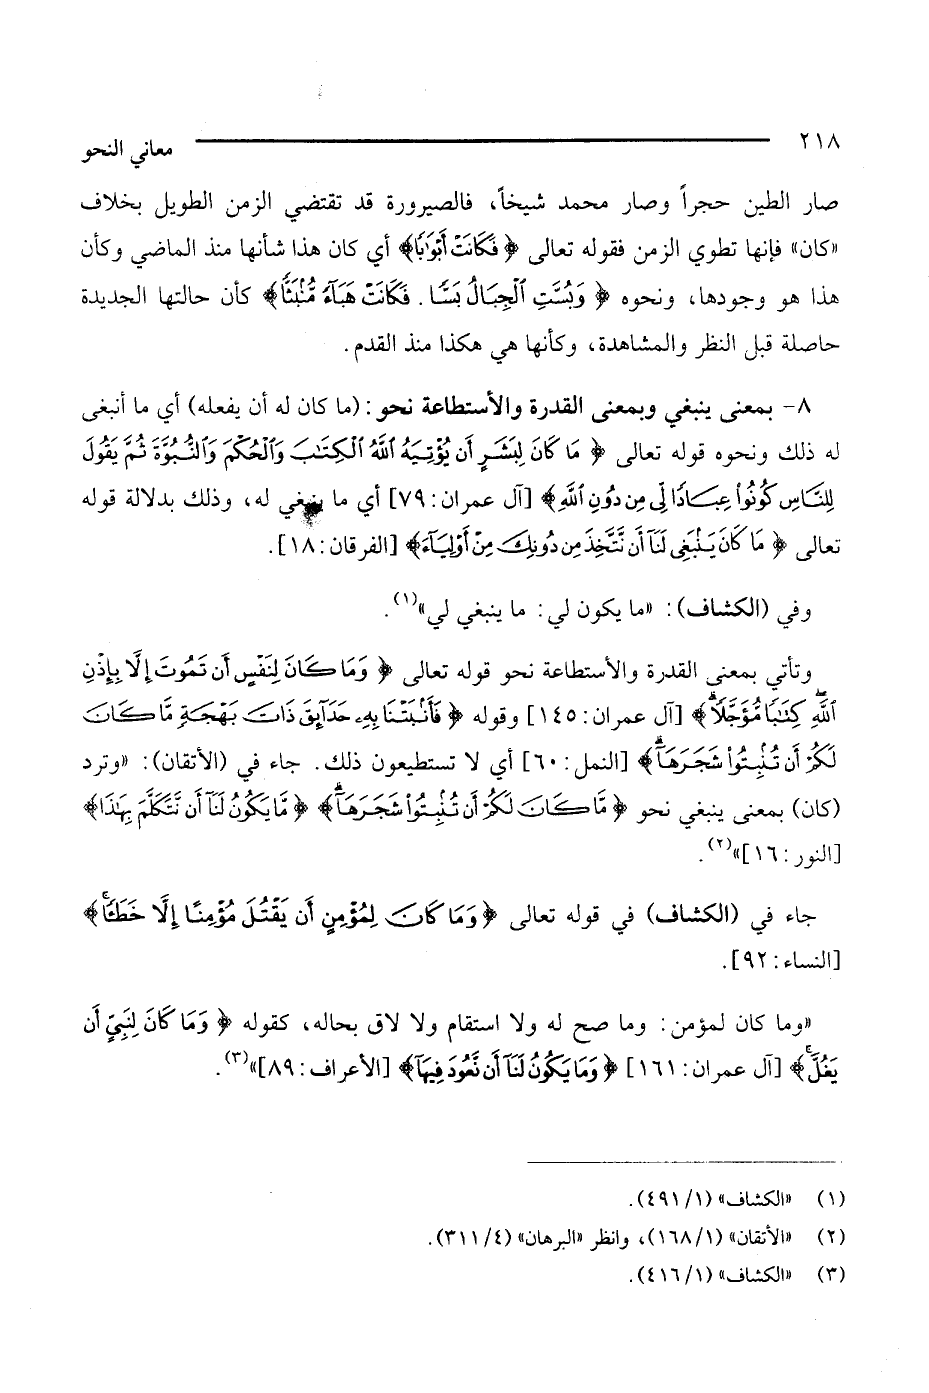 ٢١٨ معاني النحو
صار الطين حجراً وصار محمد شيخاً، فالصيرورة قد تقتضي الزمن الطويل بخلاف
«كان» فإنها تطوي الزمن فقوله تعالى ﴿ فَكَانَتْ أَبْوَٰبًا﴾ أي كان هذا شأنها منذ الماضي وكأن
هذا هو وجودها، ونحوه ﴿ وَبُسَّتِ ٱلْجِبَالُ بَسًّا . فَكَانَتْ هَبَآءً مُّنۢبَثًّا﴾ كأن حالتها الجديدة
حاصلة قبل النظر والمشاهدة، وكأنها هي هكذا منذ القدم.
٨- بمعنى ينبغي وبمعنى القدرة والأستطاعة نحو: (ما كان له أن يفعله) أي ما أنبغى
له ذلك ونحوه قوله تعالى ﴿ مَا كَانَ لِبَشَرٍ أَن يُؤْتِيَهُ ٱللَّهُ ٱلْكِتَٰبَ وَٱلْحُكْمَ وَٱلنُّبُوَّةَ ثُمَّ يَقُولَ
لِلنَّاسِ كُونُوا۟ عِبَادًا لِّى مِن دُونِ ٱللَّهِ﴾ [آل عمران: ٧٩] أي ما ينبغي له، وذلك بدلالة قوله
تعالى ﴿ مَا كَانَ يَنۢبَغِى لَنَآ أَن نَّتَّخِذَ مِن دُونِكَ مِنْ أَوْلِيَآءَ﴾ [الفرقان: ١٨].
وفي (الكشاف): «ما يكون لي: ما ينبغي لي»(١).
وتأتي بمعنى القدرة والأستطاعة نحو قوله تعالى ﴿ وَمَا كَانَ لِنَفْسٍ أَن تَمُوتَ إِلَّا بِإِذْنِ
ٱللَّهِ كِتَٰبًا مُّؤَجَّلًا ۗ﴾ [آل عمران: ١٤٥] وقوله ﴿ فَأَنۢبَتْنَا بِهِۦ حَدَآئِقَ ذَاتَ بَهْجَةٍ مَّا كَانَ
لَكُمْ أَن تُنۢبِتُوا۟ شَجَرَهَآ ۗ﴾ [النمل: ٦٠] أي لا تستطيعون ذلك. جاء في (الأتقان): «وترد
(كان) بمعنى ينبغي نحو ﴿ مَّا كَانَ لَكُمْ أَن تُنۢبِتُوا۟ شَجَرَهَآ ۗ﴾ ﴿ مَّا يَكُونُ لَنَآ أَن نَّتَكَلَّمَ بِهَٰذَا﴾
[النور: ١٦]»(٢).
جاء في (الكشاف) في قوله تعالى ﴿ وَمَا كَانَ لِمُؤْمِنٍ أَن يَقْتُلَ مُؤْمِنًا إِلَّا خَطَـًٔا ۚ﴾
[النساء: ٩٢].
«وما كان لمؤمن: وما صح له ولا استقام ولا لاق بحاله، كقوله ﴿ وَمَا كَانَ لِنَبِىٍّ أَن
يَغُلَّ ۚ﴾ [آل عمران: ١٦١] ﴿ وَمَا يَكُونُ لَنَآ أَن نَّعُودَ فِيهَآ﴾ [الأعراف: ٨٩]»(٣).
(١) «الكشاف» (١/ ٤٩١).
(٢) «الأتقان» (١/ ١٦٨)، وانظر «البرهان» (٤/ ٣١١).
(٣) «الكشاف» (١/ ٤١٦).